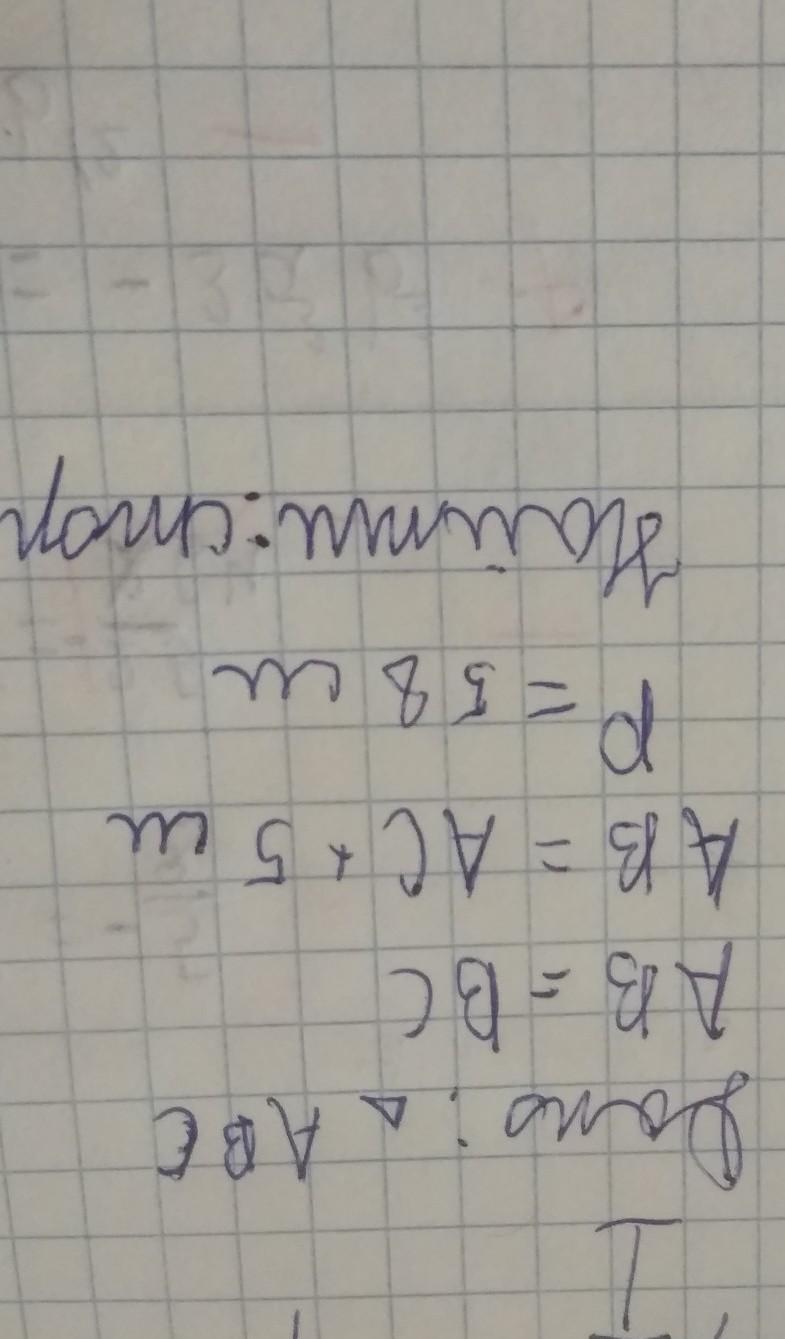 I
Дано: △ ABC
AB = BC
AB = AC + 5 см
P = 58 см
Найти: стор